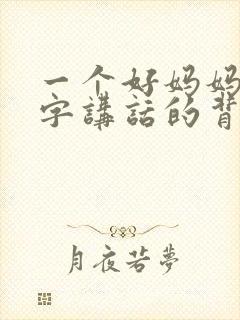 一个好妈妈
字講話的背
月夜若夢